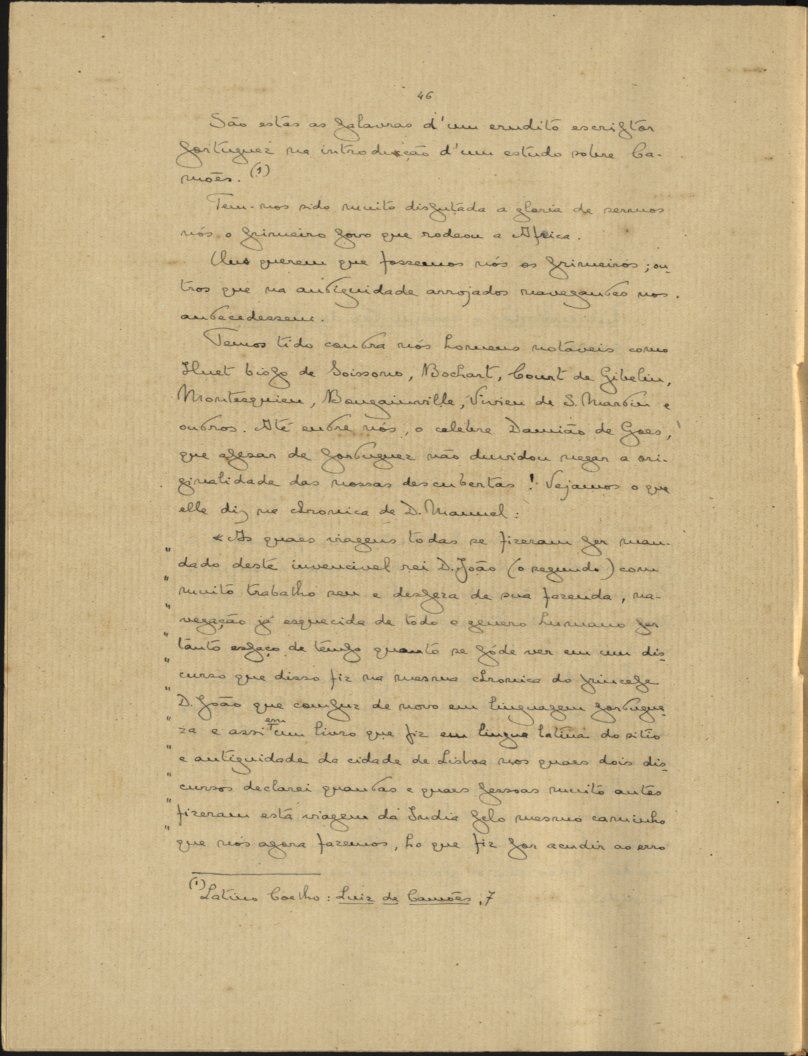 46
São estas as palavras d'um erudito escriptor
portuguez na introducção d'um estudo sobre Ca-
mões. (1)
Tem-nos sido muito disputada a gloria de sermos
nós o primeiro povo que rodeou a Africa.
Uns querem que fossemos nós os primeiros; ou-
tros que na antiguidade arrojados navegantes nos
antecedessem.
Temos tido contra nós homens notáveis como
Huet bispo de Soissons, Bochart, Court de Gibelin,
Montesquieu, Bougainville, Vivien de S. Martin e
outros. Até entre nós, o celebre Damião de Goes,
que apesar de portuguez não duvidou negar a ori-
ginalidade das nossas descubertas! Vejamos o que
elle diz na chronica de D. Manuel:
« As quaes viagens todas se fizeram per man-
" dado deste invencivel rei D. João (o segundo) com
" muito trabalho seu e despeza de sua fazenda, na-
" vegação já esquecida de todo o genero humano per
" tanto espaço de tempo quanto se póde ver em um dis-
" curso que disso fiz na mesma chronica do principe
" D. João que compuz de novo em linguagem portugue-
" za e assi em um livro que fiz em lingua latina do sitio
" e antiguidade da cidade de Lisboa nos quaes dois dis-
" cursos declarei quantas e quaes pessoas muito antes
" fizeram esta viagem da India pelo mesmo caminho
" que nós agora fazemos, ho que fiz por acudir ao erro
(1) Latino Coelho: Luiz de Camões, 7